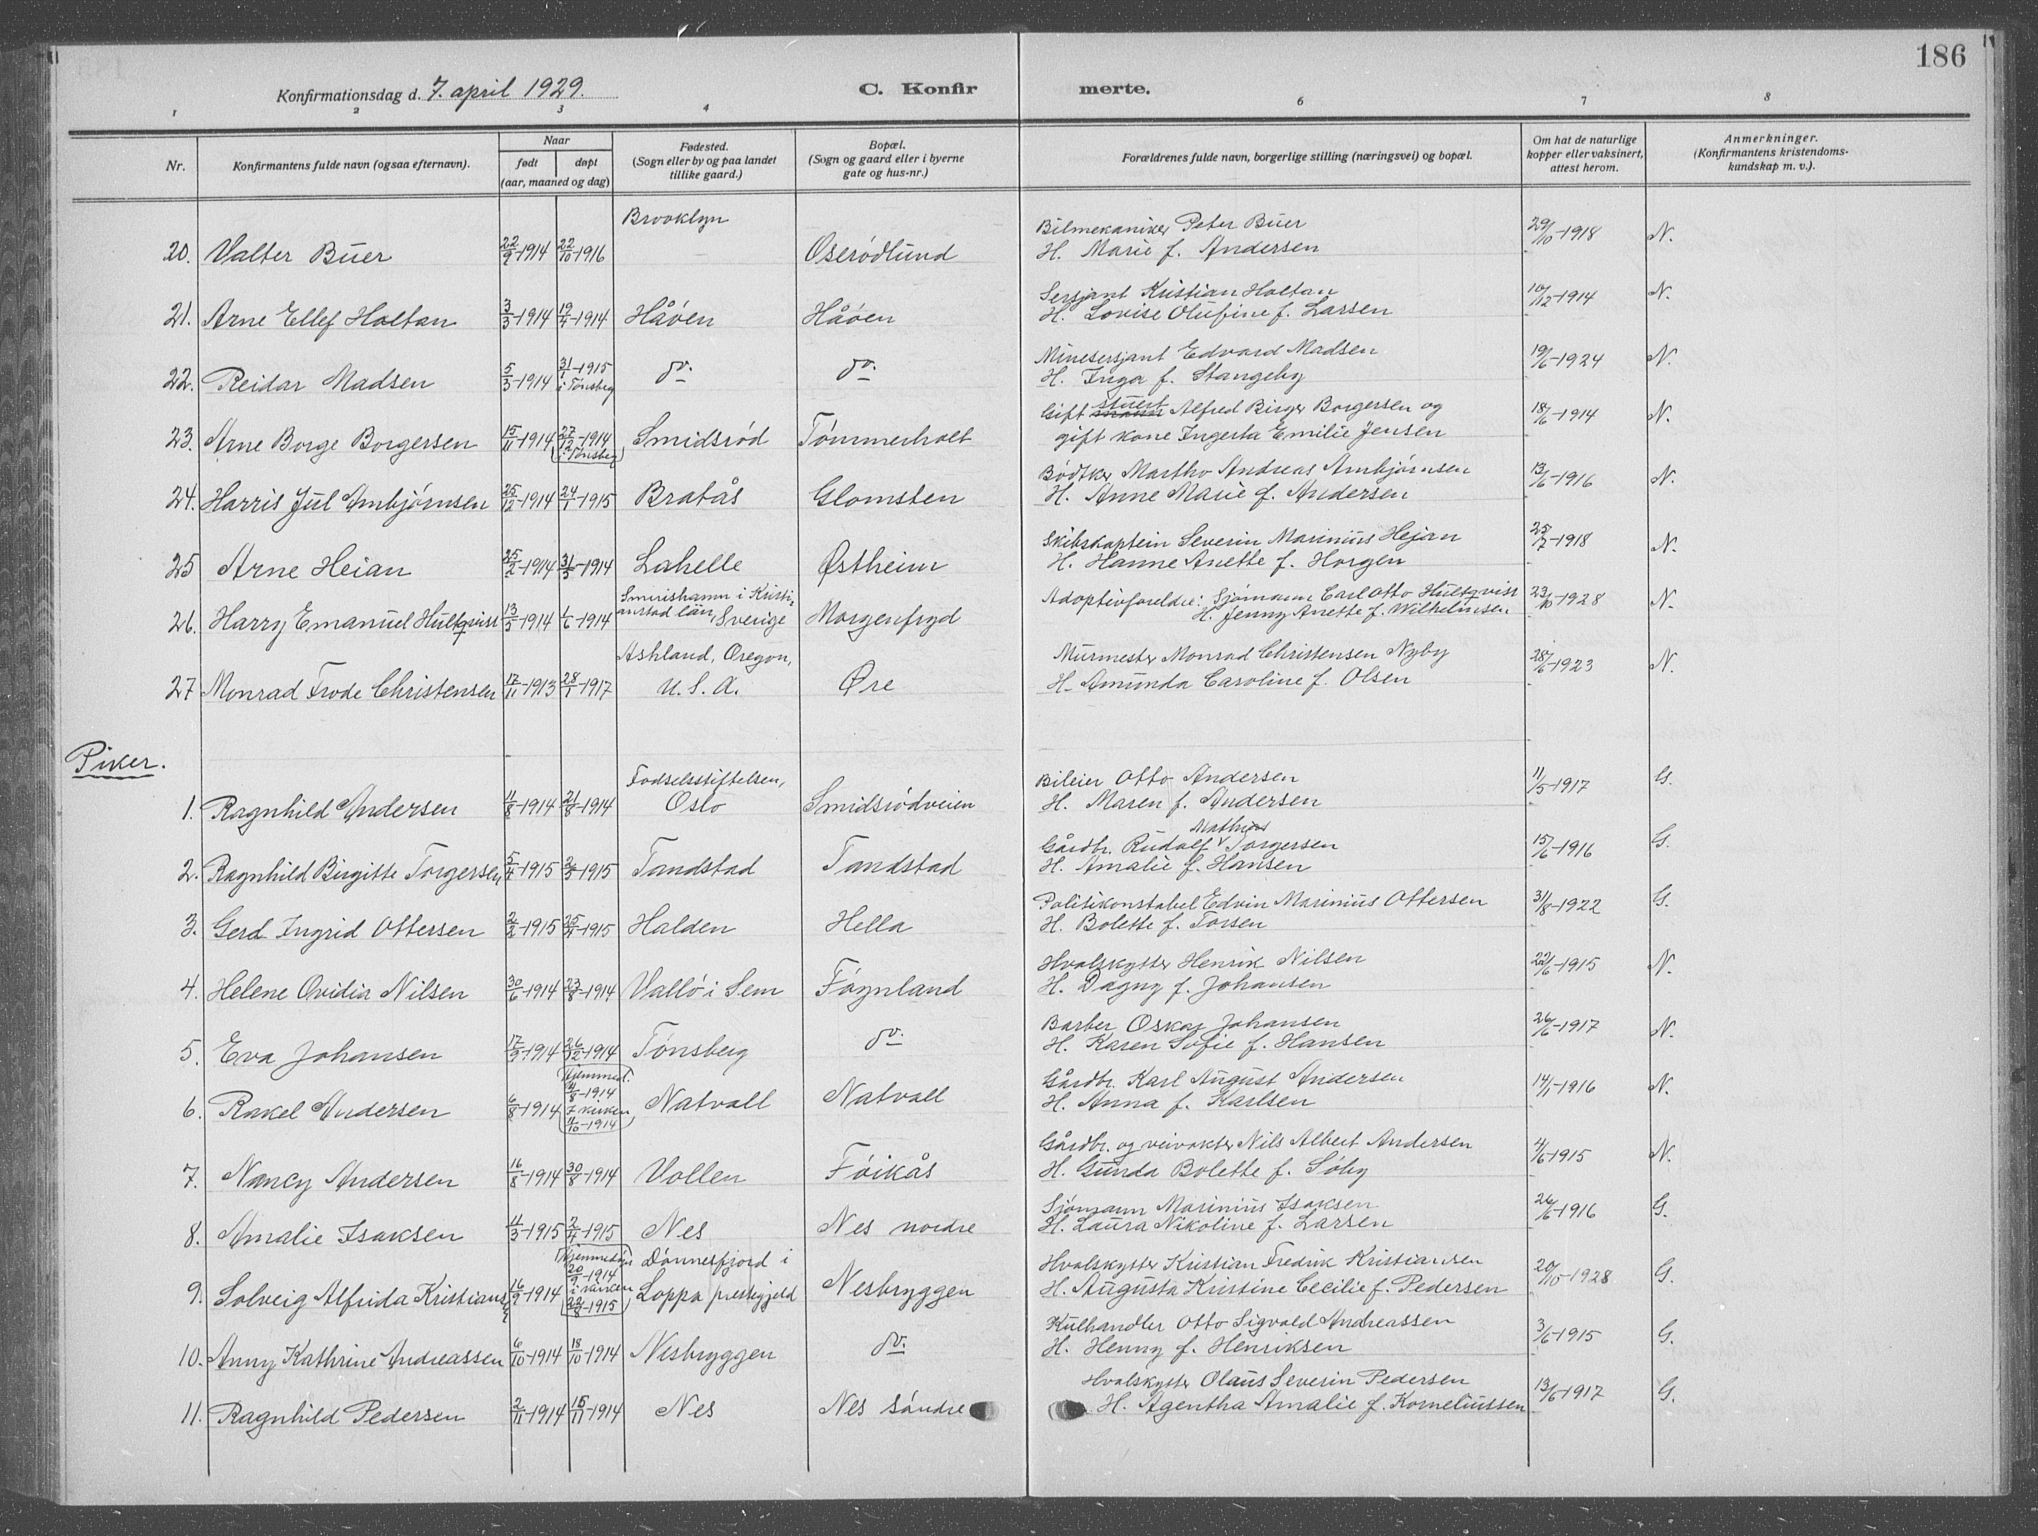 186
Konfirmationsdag d. 7. april 1929.
C. Konfirmerte.
1 2 3 4 6 7 8
Nr.
Konfirmantens fulde navn (ogsaa efternavn).
Naar
født døpt
(aar, maaned og dag)
Fødested.
(Sogn eller by og paa landet
tillike gaard.)
Bopæl.
(Sogn og gaard eller i byerne
gate og hus-nr.)
Forældrenes fulde navn, borgerlige stilling (næringsvei) og bopæl.
Om hat de naturlige
kopper eller vaksinert,
attest herom.
Anmerkninger.
(Konfirmantens kristendoms-
kundskap m. v.).
Brooklyn
20. Valter Buer 22/9-1914 22/10-1916 Oserødlund
Bilmekaniker Peter Buer
H. Marie f. Andersen
29/10-1918 N.
21. Arne Ellef Holtan 3/3-1914 19/4-1914 Håøen Håøen
Sersjant Kristian Holtan
H. Lovise Olufine f. Larsen
10/12-1914 N.
22. Reidar Madsen 5/3-1914 31/1-1915 i Tønsberg do. do.
Minesersjant Edvard Madsen
H. Inga f. Stangeby
19/6-1924 N.
23. Arne Borge Borgersen 15/11-1914 27/12-1914 (i Tønsberg) Smidsrød Tømmerholt
Gift stuert Alfred Birger Borgersen og
gift kone Ingerta Emilie Jensen
18/6-1914 N.
24. Harris Jul Ambjørnsen 25/12-1914 24/1-1915 Bratås Glomsten
Bødtker Martho Andreas Ambjørnsen
H. Anne Marie f. Andersen
13/6-1916 N.
25 Arne Heian 25/2-1914 31/5-1914 Lahelle Østheim
Skibskaptein Severin Marinius Hejan
H. Hanne Anette f. Horgen
25/7-1918 N.
26. Harry Emanuel Hultqvist 13/3-1914 1/6-1914
Smirishamn i Kristi-
anstad län, Sverige
Morgenfryd
Adoptivforeldre: Sjømann Carl Otto Hultqvist
H. Jenny Anette f. Wilhelmsen
23/10-1928 N.
Ashland, Oregon,
27 Monrad Frode Christensen 17/11-1913 28/1-1917 U.S.A. Øre
Murmester Monrad Christensen Nyby
H. Amunda Caroline f. Olsen
28/6-1923 N.
Piker.
Fødselsstiftelsen,
1. Ragnhild Andersen 11/8-1914 21/8-1914 Oslo Smidsrødveien
Bileier Otto Andersen
H. Maren f. Andersen
11/5-1917 G.
2. Ragnhild Birgitte Torgersen 5/4-1915 1915 Tandstad Tandstad
Mathias
Gårdbr. Rudolf v Torgersen
H. Amalie f. Hansen
15/6-1916 G.
3. Gerd Ingrid Ottersen 2/2-1915 25/4-1915 Halden Hella
Politikonstabel Edvin Marinius Ottersen
H. Bolette f. Torsen
31/8-1922 G.
4. Helene Ovidia Nilsen 30/6-1914 23/8-1914 Vallø i Sem Føynland
Hvalskytter Henrik Nilsen
H. Dagny f. Johansen
22/6-1915 N.
5. Eva Johansen 17/3-1914 26/12-1914 Tønsberg do.
Barber Oskar Johansen
H. Karen Sofie f. Hansen
26/6-1917 N.
6. Rakel Andersen 6/8-1914 (Hjemmed. 11/8-1914 i kirken 11/10-1914) Natvall Natvall
Gårdbr. Karl August Andersen
H. Anna f. Karlsen
14/11-1916 N.
7. Nancy Andersen 16/8-1914 30/8-1914 Vollen Føikås
Gårdbr. og veivokter Nils Albert Andersen
H. Gunda Bolette f. Søby
4/6-1915 N.
8. Amalie Isaksen 11/3-1915 2/4-1915 Nes Nes nordre
Sjømann Marinius Isaksen
H. Laura Nikoline f. Larsen
26/6-1916 G.
9. Solveig Alfrida Kristiansen 16/9-1914 (Hjemmedøpt 20/9-1914 i kirken 22/8-1915)
Dønnesfjord i
Loppa prestegjeld
Nesbryggen
Hvalskytter Kristian Fredrik Kristiansen
H. Augusta Kristine Cecilie f. Pedersen
20/10-1928 G.
10. Anny Kathrine Andreassen 6/10-1914 18/10-1914 Nesbryggen do.
Kulhandler Otto Sigvald Andreassen
H. Henny f. Henriksen
3/6-1915 G.
11. Ragnhild Pedersen 2/11-1914 15/11-1914 Nes Nes søndre
Hvalskytter Olaus Severin Pedersen
H. Agentha Amalie f. Korneliussen
13/6-1917 G.